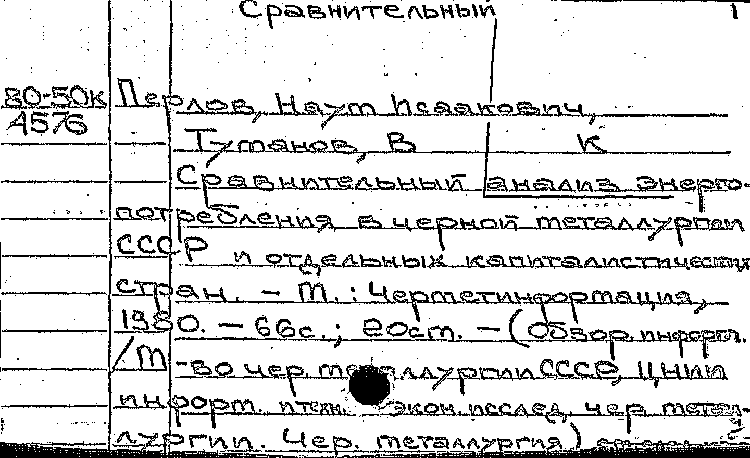 Сравнительный 1
80-50к Перлов, Наум Исаакович,
4576
Туманов, В К
Сравнительный анализ энерго-
потребления в черной металлургии
СССР и отдельных капиталистических
стран. - М.: Черметинформация,
1980. - 66с.; 20см. - (Обзор. информ.
/М-во чер. металлургии СССР, ЦНИИ
информ. и техн. экон. исслед. чер. метал-
лургии. Чер. металлургия)